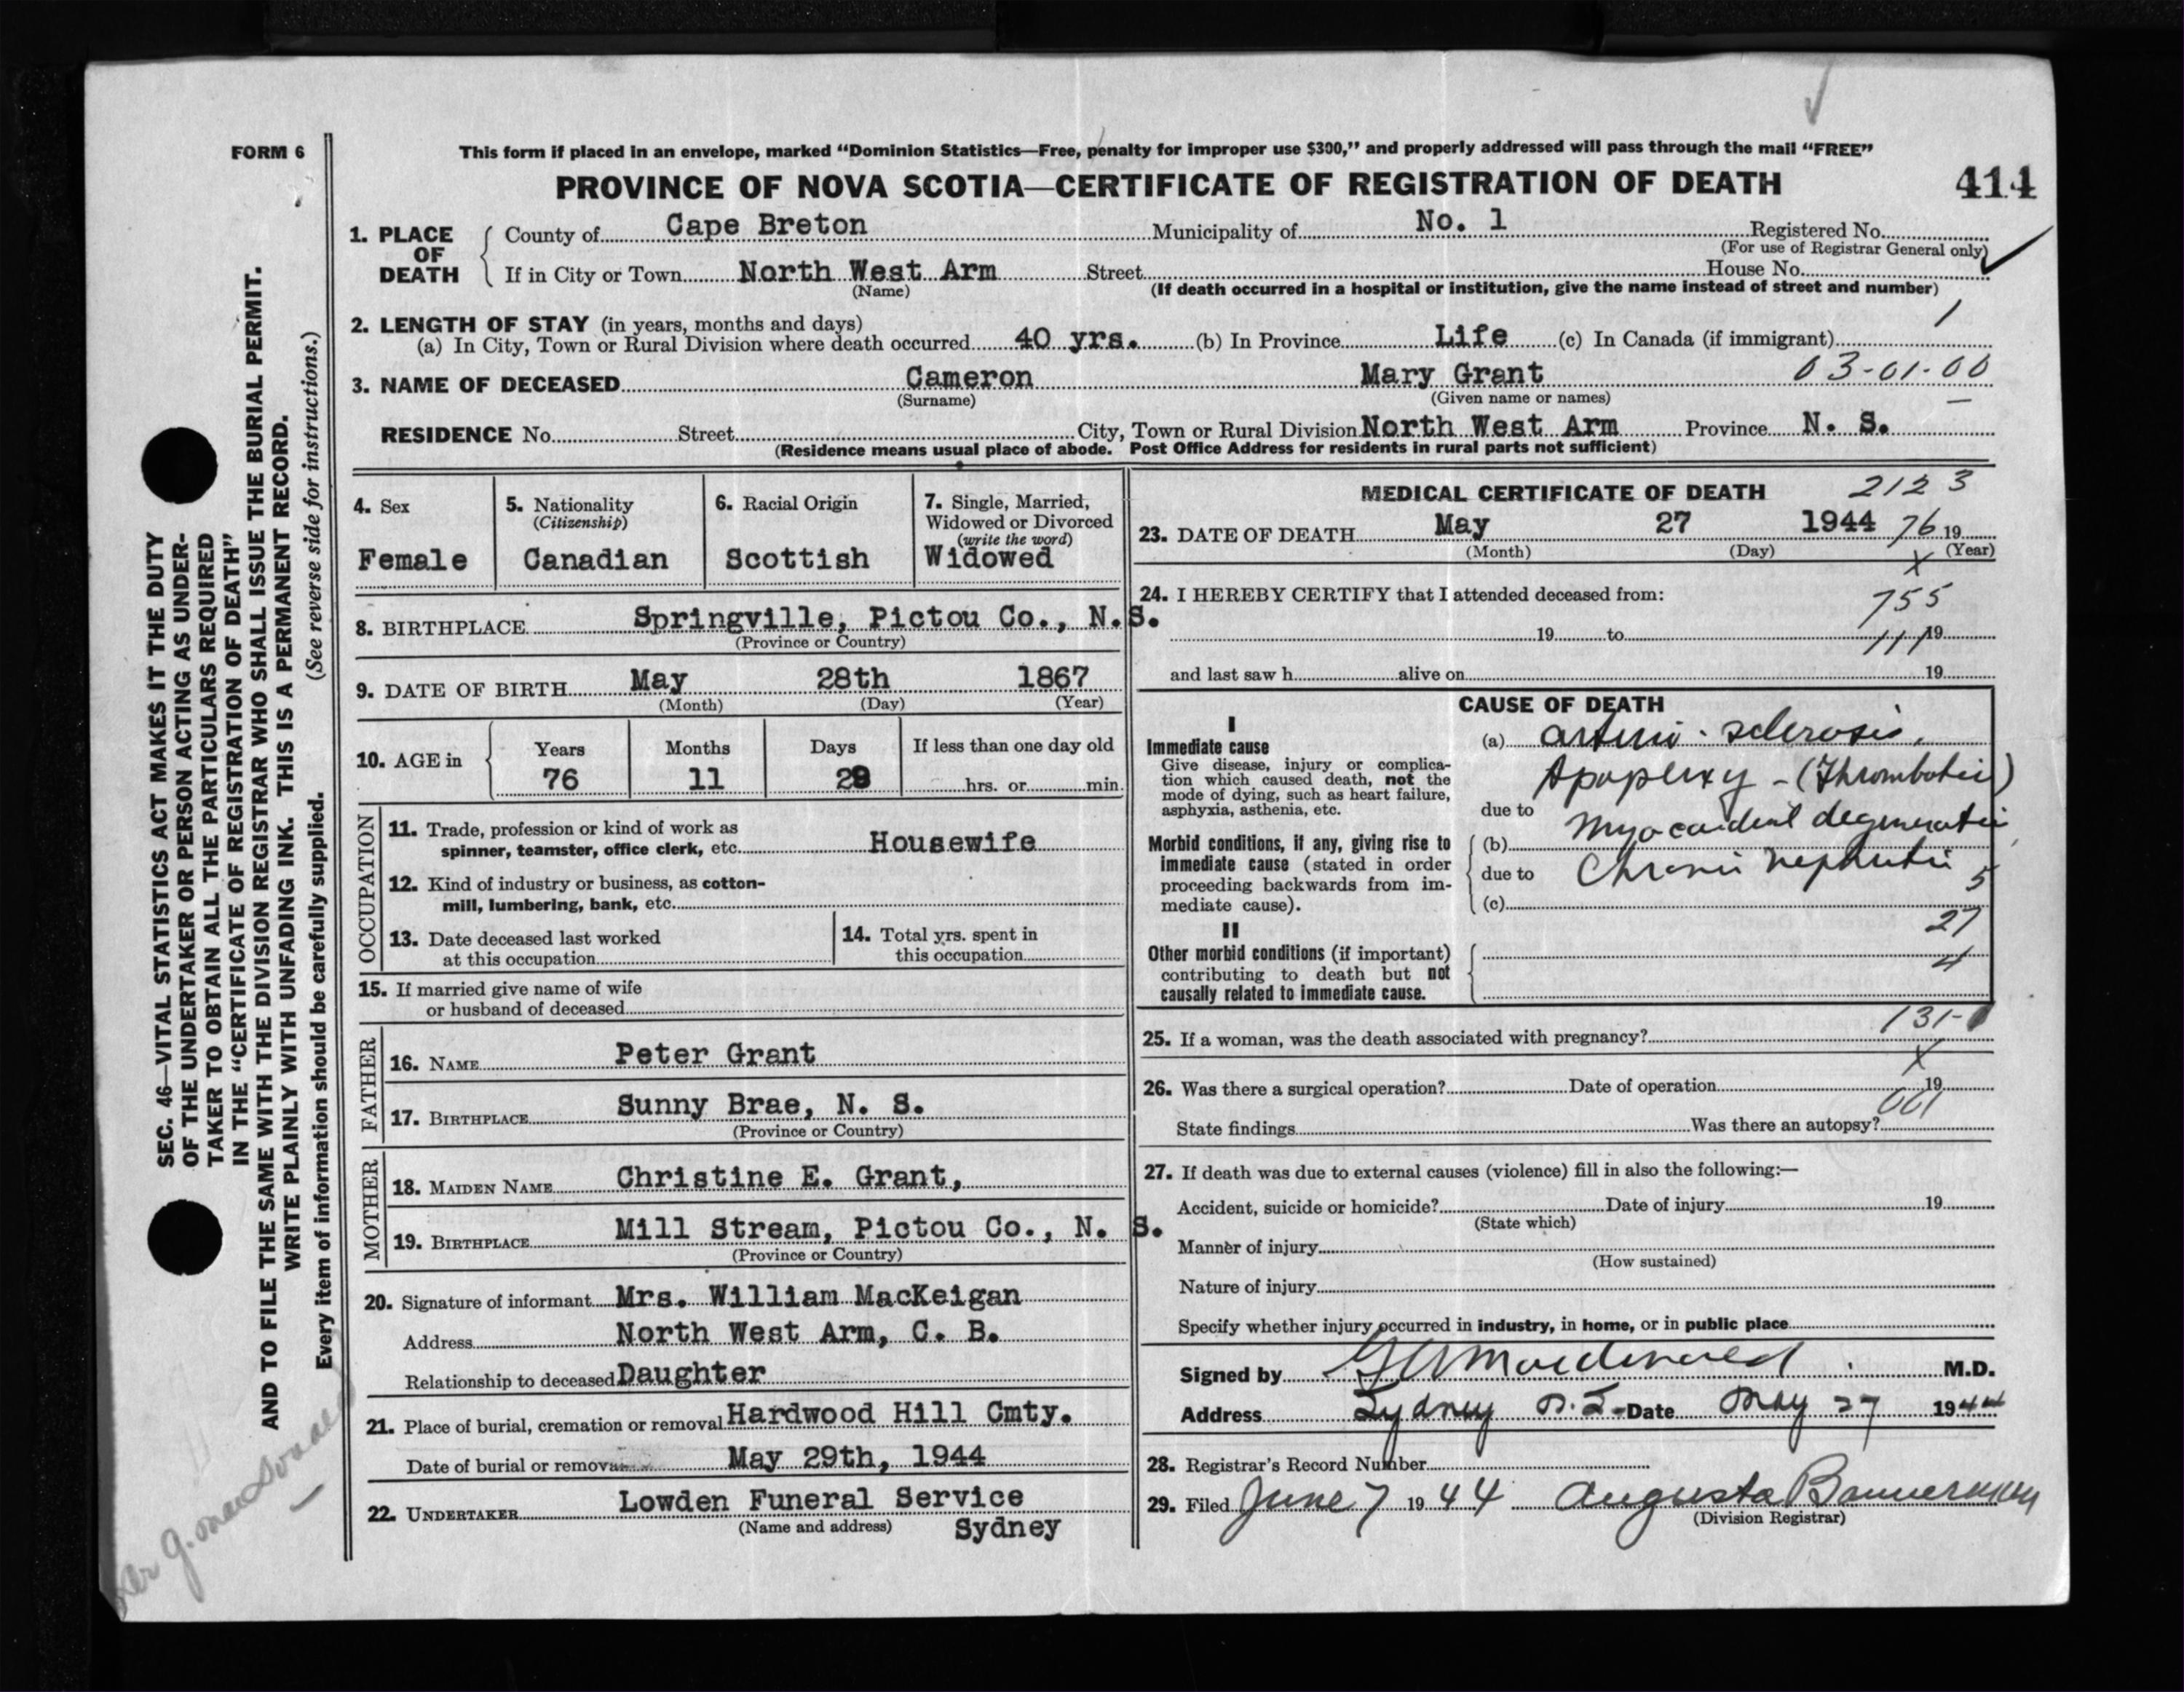 FORM 6
This form if placed in an envelope, marked “Dominion Statistics—Free, penalty for improper use $300,” and properly addressed will pass through the mail “FREE”
PROVINCE OF NOVA SCOTIA—CERTIFICATE OF REGISTRATION OF DEATH 414
1. PLACE OF DEATH
County of Cape Breton Municipality of No. 1 Registered No.
(For use of Registrar General only)
If in City or Town North West Arm Street House No.
(Name) (If death occurred in a hospital or institution, give the name instead of street and number)
2. LENGTH OF STAY (in years, months and days)
(a) In City, Town or Rural Division where death occurred 40 yrs. (b) In Province Life (c) In Canada (if immigrant)
3. NAME OF DECEASED Cameron Mary Grant 03-01-00
(Surname) (Given name or names)
RESIDENCE No. Street City, Town or Rural Division North West Arm Province N. S.
(Residence means usual place of abode. Post Office Address for residents in rural parts not sufficient)
4. Sex
Female
5. Nationality
(Citizenship)
Canadian
6. Racial Origin
Scottish
7. Single, Married,
Widowed or Divorced
(write the word)
Widowed
8. BIRTHPLACE Springville, Pictou Co., N.S.
(Province or Country)
9. DATE OF BIRTH May 28th 1867
(Month) (Day) (Year)
10. AGE in
Years Months Days If less than one day old
76 11 29 hrs. or min.
OCCUPATION
11. Trade, profession or kind of work as
spinner, teamster, office clerk, etc. Housewife
12. Kind of industry or business, as cotton-
mill, lumbering, bank, etc.
13. Date deceased last worked
at this occupation
14. Total yrs. spent in
this occupation
15. If married give name of wife
or husband of deceased
FATHER
16. NAME Peter Grant
17. BIRTHPLACE Sunny Brae, N. S.
(Province or Country)
MOTHER
18. MAIDEN NAME Christine E. Grant,
19. BIRTHPLACE Mill Stream, Pictou Co., N. S.
(Province or Country)
20. Signature of informant Mrs. William MacKeigan
Address North West Arm, C. B.
Relationship to deceased Daughter
21. Place of burial, cremation or removal Hardwood Hill Cmty.
Date of burial or removal May 29th, 1944
22. UNDERTAKER Lowden Funeral Service
(Name and address) Sydney
MEDICAL CERTIFICATE OF DEATH 2123
23. DATE OF DEATH May 27 1944 76 19
(Month) (Day) (Year)
X
24. I HEREBY CERTIFY that I attended deceased from: 755
19 to 111 19
and last saw h alive on 19
CAUSE OF DEATH
I
Immediate cause
Give disease, injury or complica-
tion which caused death, not the
mode of dying, such as heart failure,
asphyxia, asthenia, etc.
(a) Arterio-sclerosis.
Apoplexy - (Thrombotic)
due to
Myocardial degeneration
Morbid conditions, if any, giving rise to
immediate cause (stated in order
proceeding backwards from im-
mediate cause).
(b)
due to Chronic nephritis 5
(c)
27
II
Other morbid conditions (if important)
contributing to death but not
causally related to immediate cause.
4
131-1
25. If a woman, was the death associated with pregnancy?
X
26. Was there a surgical operation? Date of operation 19
001
State findings Was there an autopsy?
27. If death was due to external causes (violence) fill in also the following:—
Accident, suicide or homicide? Date of injury 19
(State which)
Manner of injury
(How sustained)
Nature of injury
Specify whether injury occurred in industry, in home, or in public place
Signed by Macdonald M.D.
Address Sydney N.S. Date May 27 1944
28. Registrar's Record Number
29. Filed June 7 1944 Augusta Bannerman
(Division Registrar)
SEC. 46—VITAL STATISTICS ACT MAKES IT THE DUTY
OF THE UNDERTAKER OR PERSON ACTING AS UNDER-
TAKER TO OBTAIN ALL THE PARTICULARS REQUIRED
IN THE “CERTIFICATE OF REGISTRATION OF DEATH”
AND TO FILE THE SAME WITH THE DIVISION REGISTRAR WHO SHALL ISSUE THE BURIAL PERMIT.
WRITE PLAINLY WITH UNFADING INK. THIS IS A PERMANENT RECORD.
Every item of information should be carefully supplied. (See reverse side for instructions.)